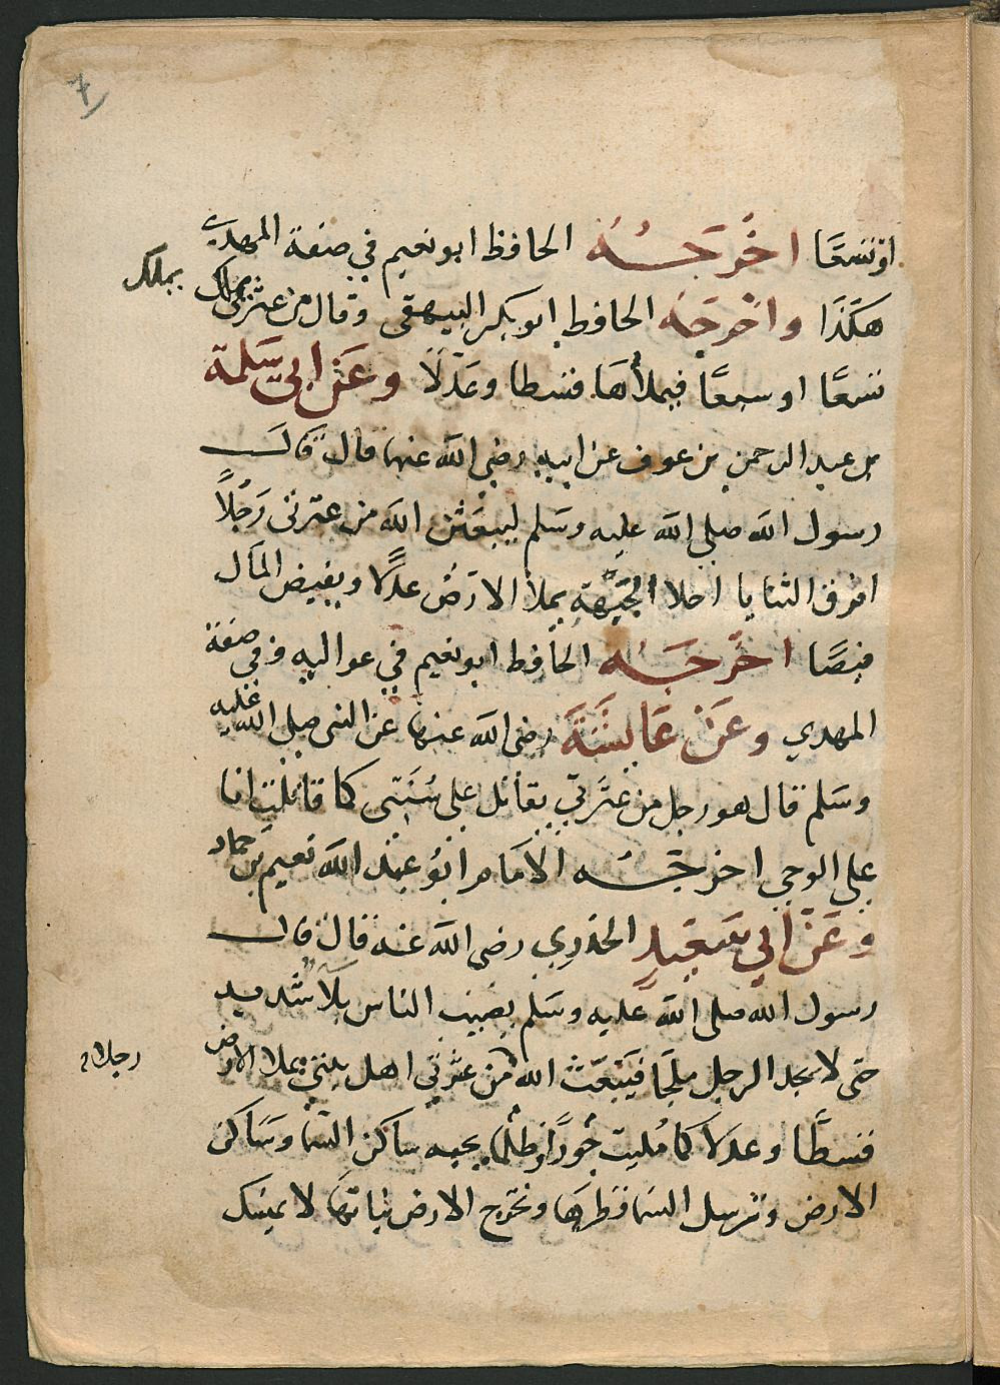 7
او تسعا اخرجه الحافظ ابو نعيم في صفة المهدي
هكذا واخرجه الحافظ ابو بكر البيهقى وقال من عترتى يملك
يملك
تسعًا او سبعًا فيملأها قسطا وعدلا وعن ابي سلمة
بن عبد الرحمن بن عوف عن ابيه رضي الله عنهما قال قال
رسول الله صلى الله عليه وسلم ليبعثن الله من عترتى رَجُلاً
افرق الثنايا اجلا الجبهة يملأ الارض عدلا ويفيض المال
فيضًا اخرجه الحافظ ابو نعيم في عواليه وفي صفة
المهدي وعن عايشة رضي الله عنها عن النبى صلى الله عليه
وسلم قال هو رجل من عترتي يقاتل على سُنتى كما قاتلت انا
على الوحي اخرجه الامام ابو عبد الله نعيم بن حماد
وعن ابي سعيد الخدري رضى الله عنه قال قال
رسول الله صلى الله عليه وسلم يصيب الناس بلاء شديد
حتى لا يجد الرجل ملجا فيبعث الله من عترتي اهل بيتي يملا الارض
رجلا
قسطًا وعدلا كما مُليت جورًا وظلمًا يحبه ساكن السما وساكن
الارض وترسل السما قطرها وتخرج الارض نباتها لا تمسك